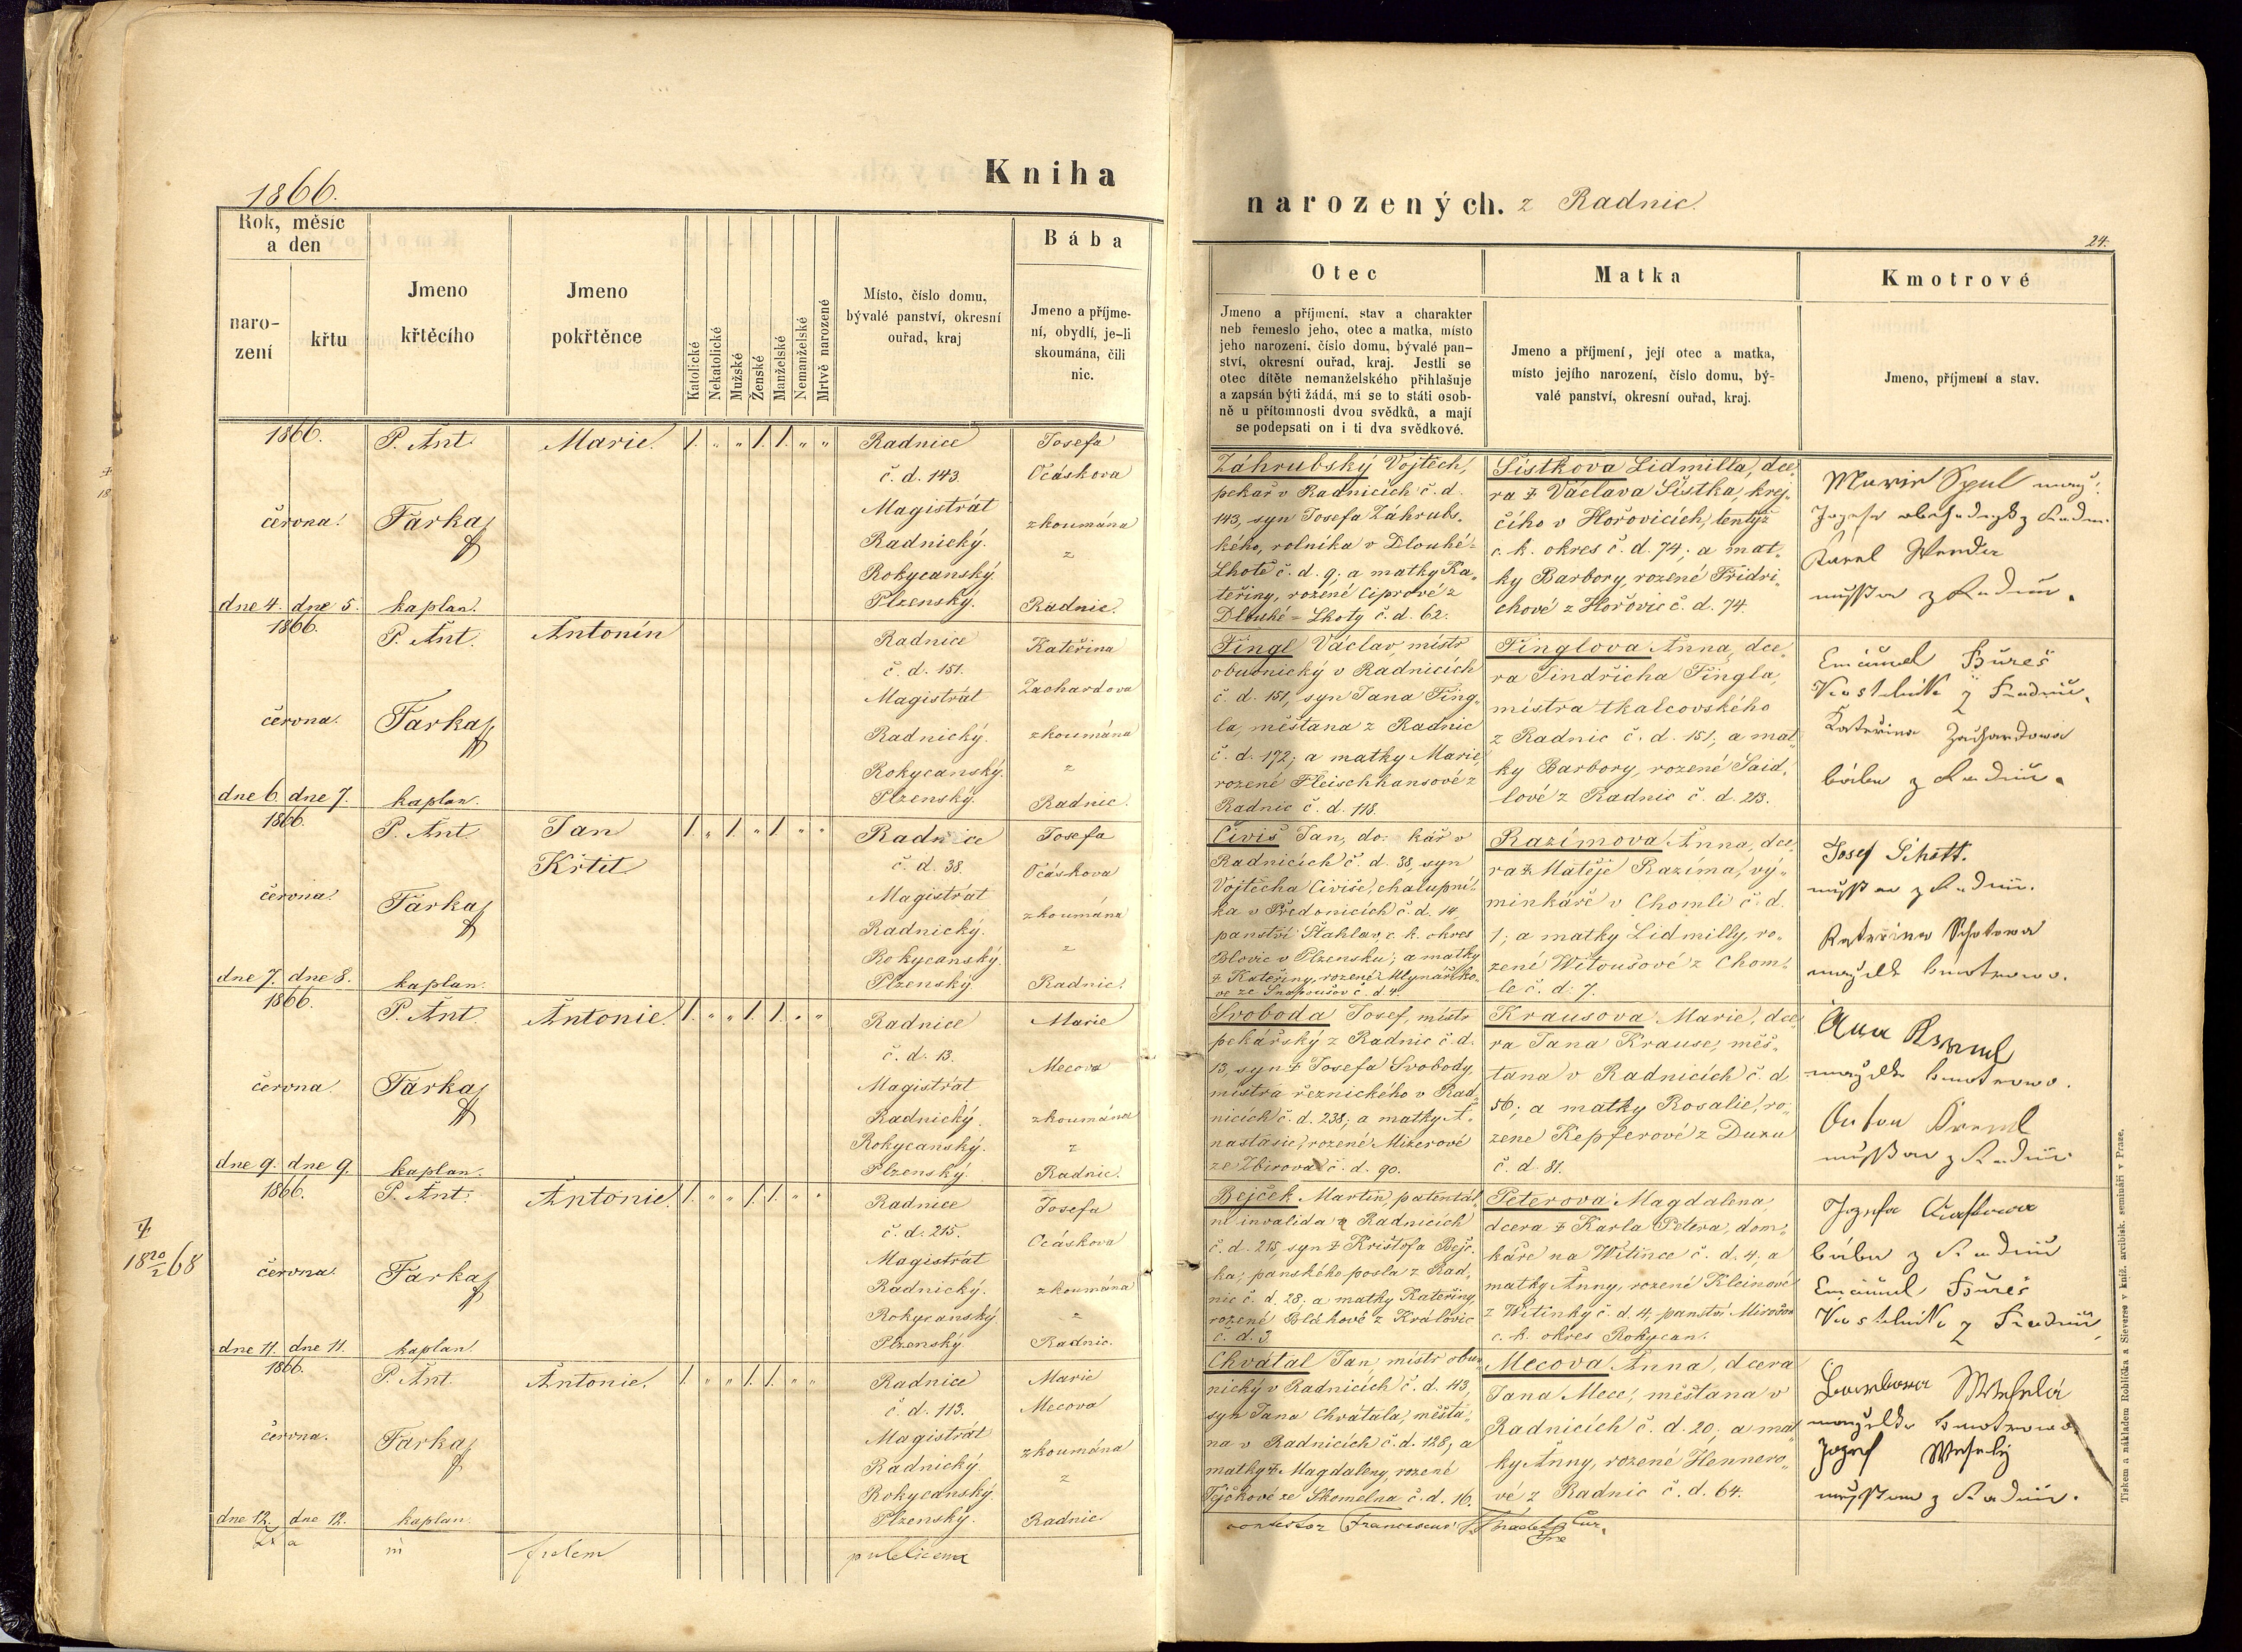 1866.
Kniha
narozených. z Radnic.
24.
Rok, měsíc
a den
naro-
zení
křtu
Jmeno
křtěcího
Jmeno
pokřtěnce
Katolické
Nekatolické
Mužské
Ženské
Manželské
Nemanželské
Mrtvě narozené
Místo, číslo domu,
bývalé panství, okresní
ouřad, kraj
Bába
Jmeno a příjme-
ní, obydlí, je-li
skoumána, čili
nic.
Otec
Jmeno a příjmení, stav a charakter
neb řemeslo jeho, otec a matka, místo
jeho narození, číslo domu, bývalé pan-
ství, okresní ouřad, kraj. Jestli se
otec dítěte nemanželského přihlašuje
a zapsán býti žádá, má se to státi osob-
ně u přítomnosti dvou svědků, a mají
se podepsati on i ti dva svědkové.
Matka
Jmeno a příjmení, její otec a matka,
místo jejího narození, číslo domu, bý-
valé panství, okresní ouřad, kraj.
Kmotrové
Jmeno, příjmení a stav.
1866.
června
dne 4. dne 5.
P. Ant.
Farka
kaplan.
Marie.
1. „ „ 1. 1. „ „
Radnice
č. d. 143.
Magistrát
Radnický.
Rokycanský.
Plzenský.
Josefa
Očáskova
zkoumána
z
Radnic.
Záhrubský Vojtěch,
pekař v Radnicích č. d.
143, syn Josefa Záhrubs-
kého, rolníka v Dlouhé-
Lhotě č. d. 9; a matky Ka-
teřiny, rozené Ciprové z
Dlouhé-Lhoty č. d. 62.
Šístkova Lidmilla, dce-
ra ‡ Václava Šístka, krej-
čího v Hořovicích, tentýž
c. k. okres č. d. 74; a mat-
ky Barbory, rozené Fridri-
chové z Hořovic č. d. 74.
Karel
1866.
června.
dne 6. dne 7.
P. Ant.
Farka
kaplan.
Antonín
Radnice
č. d. 151.
Magistrát
Radnický.
Rokycanský.
Plzenský.
Kateřina
Zachardova
zkoumána
z
Radnic.
Fingl Václav, mistr
obuvnický v Radnicích
č. d. 151, syn Jana Fing-
la, měštana z Radnic
č. d. 172; a matky Marie,
rozené Fleischhansové z
Radnic č. d. 118.
Finglova Anna, dce-
ra Jindřicha Fingla,
mistra tkalcovského
z Radnic č. d. 151; a mat-
ky Barbory, rozené Said-
lové z Radnic č. d. 213.
Emanuel Bureš
Kateřina Zachardowa
bába z Radnic.
1866.
června
dne 7. dne 8.
P. Ant.
Farka
kaplan.
Jan
Křtit.
1. „ 1. „ 1. „ „
Radnice
č. d. 38.
Magistrát
Radnický.
Rokycanský.
Plzenský
Josefa
Očáskova
zkoumána
z
Radnic.
Civiš Jan, do kář v
Radnicích č. d. 38, syn
Vojtěcha Civiše, chalupní-
ka v Předonicích č. d. 14,
panství Štahlav, c. k. okres
Blovic v Plzensku; a matky
‡ Kateřiny, rozené Mlynářiko-
vé ze Snopoušov č. d. 4.
Razímova Anna, dce-
ra ‡ Matěje Razíma, vý-
minkáře v Chomli č. d.
1; a matky Lidmilly, ro-
zené Witoušové z Chom-
le č. d. 7.
Josef Schott.
1866.
června.
dne 9. dne 9.
P. Ant.
Farka
kaplan.
Antonie.
1. „ „ 1. 1. „ „
Radnice
č. d. 13.
Magistrát
Radnický.
Rokycanský.
Plzenský
Marie
Mecova
zkoumána
z
Radnic.
Svoboda Josef, mistr
pekářský z Radnic č. d.
13, syn ‡ Josefa Svobody,
mistra řeznického v Rad-
nicích č. d. 238; a matky A-
nastasie, rozené Mizerové
ze Zbirova č. d. 90.
Krausova Marie, dce-
ra Jana Krause, měš-
tana v Radnicích č. d.
56; a matky Rosalie, ro-
zene Kepferové z Duxu
č. d. 81.
‡
18 20/2 68
1866.
června.
dne 11. dne 11.
P. Ant.
Farka
kaplan.
Antonie.
1. „ „ 1. 1. „ „
Radnice
č. d. 215.
Magistrát
Radnický.
Rokycanský
Plzenský.
Josefa
Očáskova
zkoumána
z
Radnic.
Bejček Martin, patentál-
ní invalida z Radnicích
č. d. 215, syn ‡ Krištofa Bejč-
ka, panského posla z Rad-
nic č. d. 28; a matky Kateřiny,
rozené Bláhové z Královic
č. d. 3
Peterova Magdalena,
dcera ‡ Karla Petera, dom-
káře na Witince č. d. 4; a
matky Anny, rozené Kleinové
z Witinky č. d. 4, panství Mirošov
c. k. okres Rokycan.
bába z Radnic
Emanuel Bureš
1866.
června.
dne 12. dne 12.
P. Ant.
Farka
kaplan.
Antonie.
1. „ „ 1. 1. „ „
Radnice
č. d. 113.
Magistrát
Radnický
Rokycanský.
Plzenský.
Marie
Mecova
zkoumána
z
Radnic.
Chvátal Jan, mistr obuv-
nický v Radnicích č. d. 43,
syn Jana Chvátala, měšta-
na v Radnicích č. d. 128; a
matky ‡ Magdaleny, rozené
Tyčkové ze Skomelna č. d. 16.
Mecova Anna, dcera
Jana Mece, měštana v
Radnicích č. d. 20; a mat-
ky Anny, rozené Hennero-
vé z Radnic č. d. 64.
in fidem publicam
Franciscus
Tiskem a nákladem Rohlíčka a Sieverse v kníž. arcibisk. semináři v Praze.